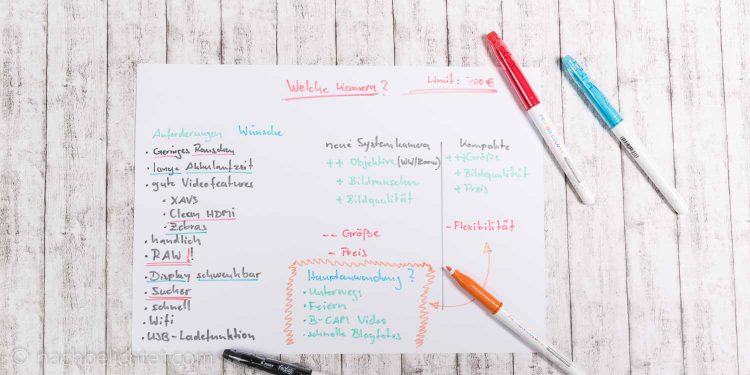 Welche Kamera?
Limit: 700 €
Anforderungen Wünsche
• Geringes Rauschen
• lange Akkulaufzeit
• gute Videofeatures
• XAVS
• Clean HDMI
• Zebras
• handlich
• RAW!!
• Display schwenkbar
• Sucher
• schnell
• Wifi
• USB-Ladefunktion
neue Systemkamera
++ Objektive (WW/Zoom)
+ Bildrauschen
+ Bildqualität
-- Größe
- Preis
Kompakte
+++ Größe
+ Bildqualität
+ Preis
- Flexibilität
Hauptanwendung?
• Unterwegs
• Feiern
• B-CAM Video
• schnelle Blogfotos
© nachbelichtet.com